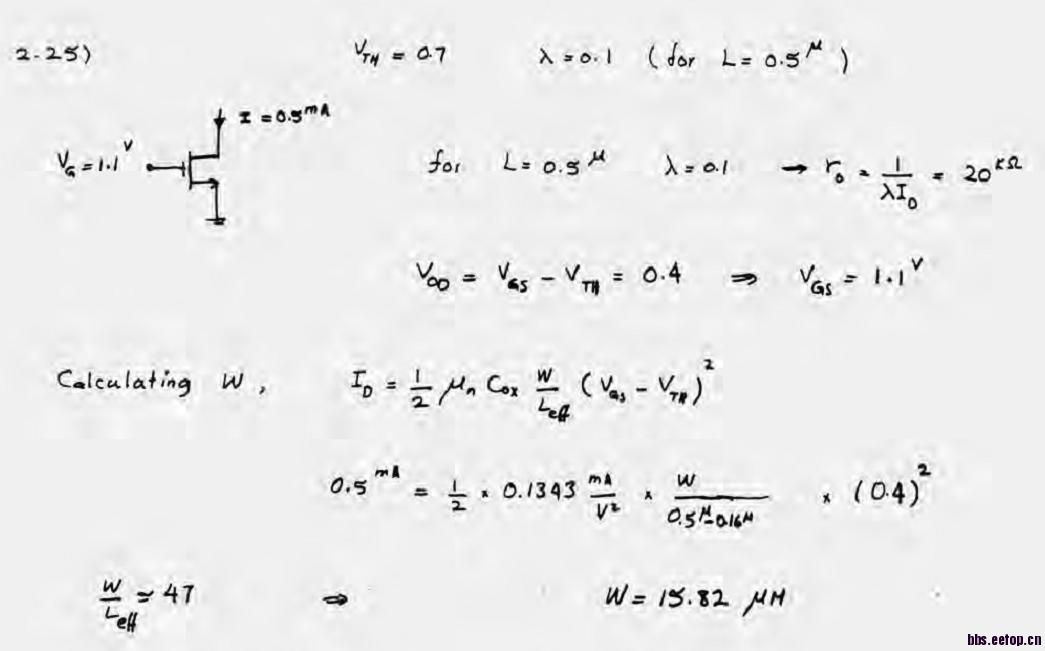 2-25) V_TH = 0.7 λ = 0.1 (for L = 0.5^μ)
I = 0.5^mA
V_G = 1.1^V
for L = 0.5^μ λ = 0.1 → r_o = 1/(λI_D) = 20^KΩ
V_OD = V_GS - V_TH = 0.4 ⇒ V_GS = 1.1^V
Calculating W, I_D = 1/2 μ_n Cox W/L_eff (V_GS - V_TH)^2
0.5^mA = 1/2 × 0.1343 mA/V^2 × W/(0.5^μ-0.16^μ) × (0.4)^2
W/L_eff ≃ 47 ⇒ W = 15.82 μM
bbs.eetop.cn